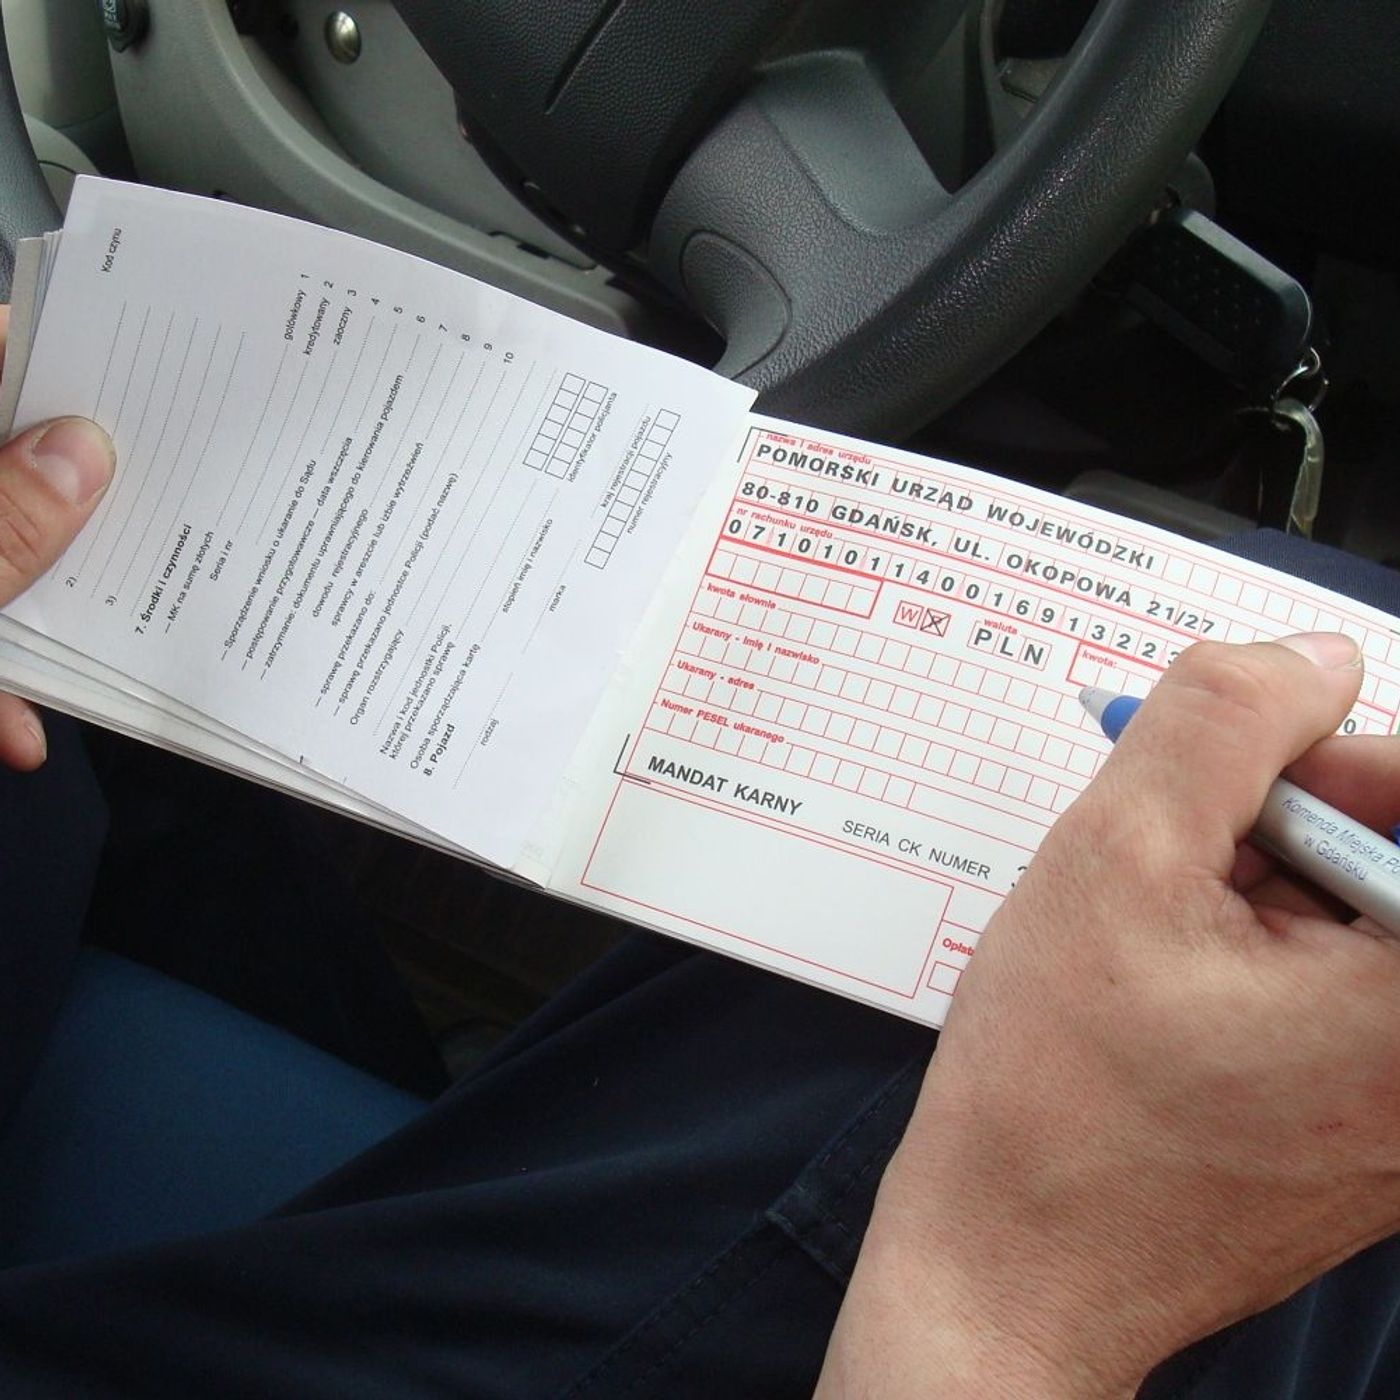 Kod czynu
2)
3)
7. Środki i czynności
— MK na sumę złotych
Seria i nr
gotówkowy 1
kredytowany 2
zaoczny 3
— Sporządzenie wniosku o ukaranie do Sądu 4
— postępowanie przygotowawcze – data wszczęcia 5
— zatrzymanie: dokumentu uprawniającego do kierowania pojazdem 6
dowodu rejestracyjnego 7
sprawcy w areszcie lub izbie wytrzeźwień 8
— sprawę przekazano do: 9
— sprawę przekazano jednostce Policji (podać nazwę) 10
Organ rozstrzygający
Nazwa i kod jednostki Policji,
której przekazano sprawę
Osoba sporządzająca kartę
stopień imię i nazwisko
identyfikator policjanta
8. Pojazd
rodzaj
marka
kraj rejestracji pojazdu
numer rejestracyjny
nazwa i adres urzędu
POMORSKI URZĄD WOJEWÓDZKI
80-810 GDAŃSK, UL. OKOPOWA 21/27
nr rachunku urzędu
0710101140016913223
W
waluta
PLN
kwota:
0
kwota słownie
Ukarany - imię i nazwisko
Ukarany - adres
Numer PESEL ukaranego
MANDAT KARNY
SERIA CK NUMER
Komenda Miejska
w Gdańsku